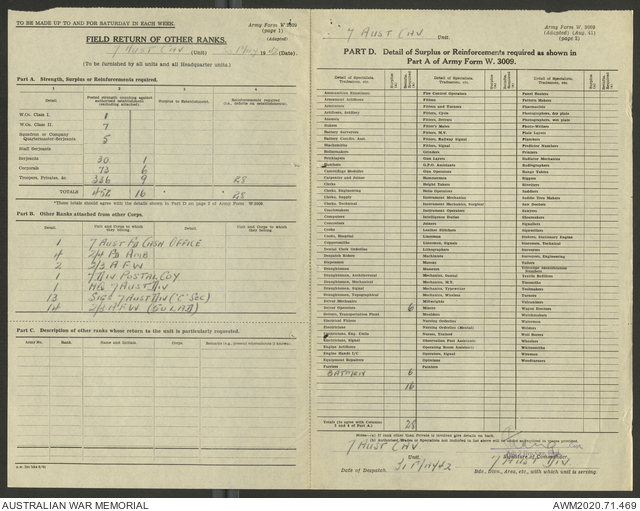 TO BE MADE UP TO AND FOR SATURDAY IN EACH WEEK.
Army Form W. 3009
(page 1)
(Adapted)
FIELD RETURN OF OTHER RANKS.
7 AUST CAV (Unit) 1942 (Date).
(To be furnished by all units and all Headquarter units.)
Part A. Strength, Surplus or Reinforcements required.
1 2 3 4
Detail. Posted strength counting against authorised establishment (excluding attached). Surplus to Establishment. Reinforcements required
W.Os. Class I. 1
W.Os. Class II. 7
Squadron or Company Quartermaster-Serjeants 5
Staff Serjeants
Serjeants 30 1
Corporals 73 6
Troopers, Privates, &c. 336 9 28
TOTALS 452 16 28
*These totals should agree with the details shown in Part D on page 2 of Army Form W.3009.
Part B. Other Ranks attached from other Corps.
Detail. Unit and Corps to which they belong. Detail. Unit and Corps to which they belong.
1 7 AUST FD CASH OFFICE
4 2/4 FD AMB
2 2/3 A F W
1 7 DIV POSTAL COY
1 HQ 7 AUST DIV
13 Sigs 7 AUST DIV ("C" SEC)
14 2/3 A.F.W.
Part C. Description of other ranks whose return to the unit is particularly requested.
Army No. Rank. Name and Initials. Corps. Remarks (e.g., present whereabouts if known).
7 AUST CAV
Unit.
Army Form W. 3009
(Adapted) (Aug. 41)
(page 2)
PART D. Detail of Surplus or Reinforcements required as shown in
Part A of Army Form W. 3009.
Detail of Specialists, Tradesmen, etc. Surplus (a) Reinforcements (b)
Ammunition Examiners
Armament Artificers
Armourers
Artificers, Artillery
Bakers
Battery Surveyors
Blacksmiths
Boilermakers
Bricklayers
Butchers
Camouflage Modeller
Carpenter and Joiner
Clerks
Clerks, Engineering
Clerks, Supply
Clerks, Technical
Computers
Cooks
Cooks, Hospital
Coppersmiths
Dental Clerk Orderlies
Despatch Riders
Dispensers
Draughtsmen
Draughtsmen, Architectural
Draughtsmen, Mechanical
Draughtsmen, Signal
Draughtsmen, Topographical
Driver Mechanics
Driver Operators 6
Drivers, Transportation Plant
Electrical Fitters
Electricians
Electricians, Signal
Engine Artificers
Engine Hands I.C.
Equipment Repairers
Farriers
BATMEN 6
16
Totals (to agree with Columns 3 and 4 of Part A) 28
Fire Control Operators
Fitters
Fitters and Turners
Fitters, Cycle
Fitters, Motor
Fitters, M.V.
Fitters, Railway Signal
Fitters, Signal
Grinders
Gun Layers
Gun Operators
Hammermen
Height Takers
Instrument Mechanics
Instrument Mechanics, Surgical
Instrument Operators
Joiners
Leather Stitchers
Linesmen
Linesmen, Signals
Machinists
Masons
Mechanics, Dental
Mechanics, M.V.
Mechanics, Typewriter
Mechanics, Wireless
Millwrights
Miners
Moulders
Nursing Orderlies
Nursing Orderlies (Mental)
Observation Post Assistants
Operating Room Assistants
Operators, Signal
Opticians
Painters
Panel Beaters
Pattern Makers
Pharmacists
Photo-Writers
Plate Layers
Plumbers
Predictor Numbers
Printers
Radiotor Mechanics
Radiographers
Range Takers
Riggers
Riveters
Saddlers
Saddle Tree Makers
Saw Doctors
Sawyers
Shoemakers
Signallers
Storemen
Storemen, Technical
Surveyors
Surveyors, Engineering
Tailors
Textile Refitters
Tinsmiths
Toolmakers
Turners
Vulcanizers
Wagon Erectors
Watchmakers
Watermen
Welders
Well Borers
Wheelers
Whitesmiths
Wiremen
Woodturners
7 AUST CAV
Unit.
Date of Despatch. 31 MAY 42
Signature of Commander.
7 AUST DIV
Bde., Divn., Area, etc., with which unit is serving.
AUSTRALIAN WAR MEMORIAL
AWM2020.71.469